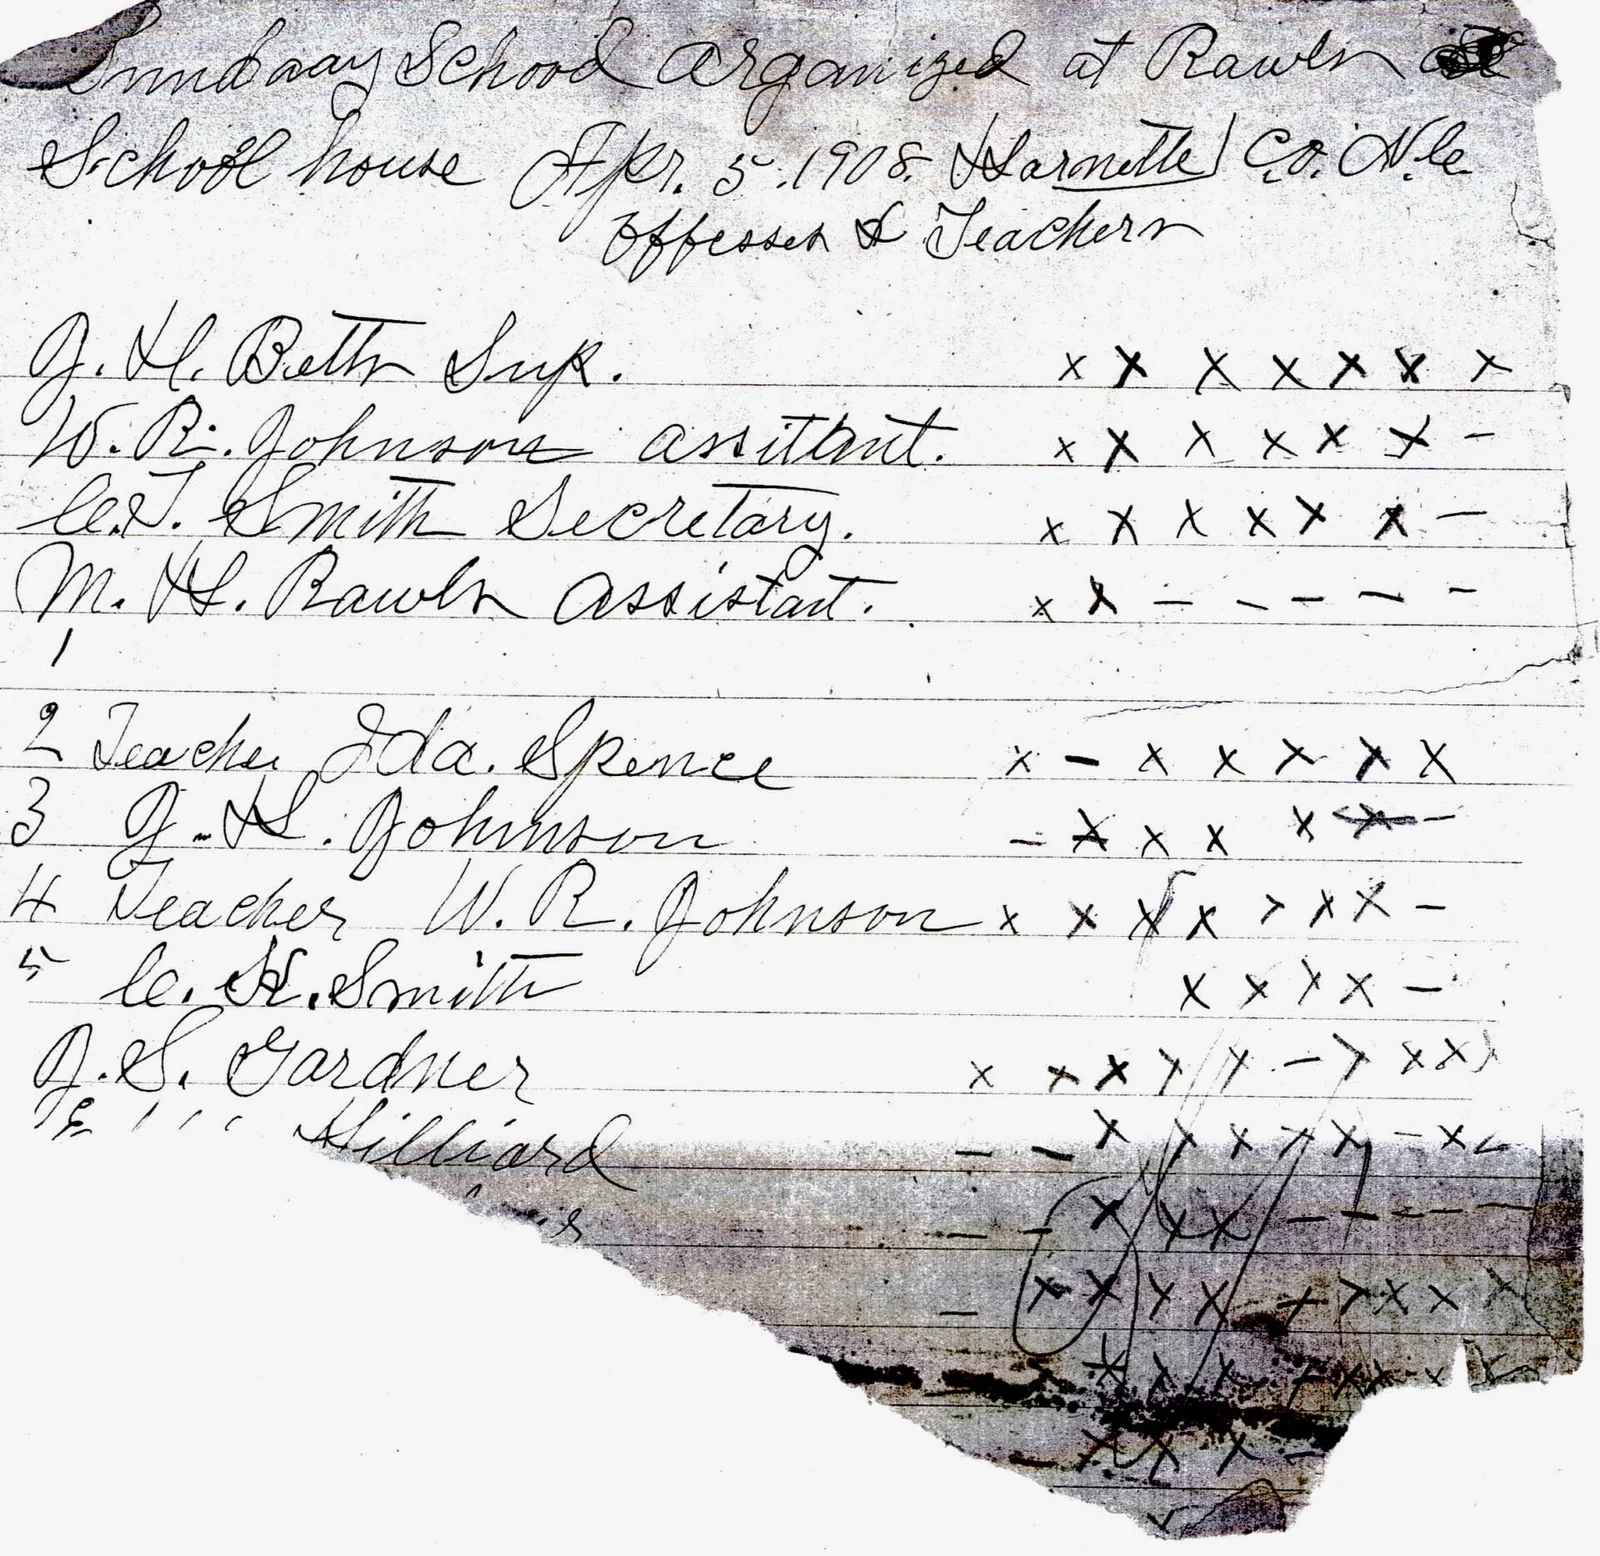 Sundaay School organized at Rawls
School house Apr. 5. 1908. Harnette Co. N.C.
Offesses & Teachers
J. H. Betts Sup. x x x x x x x
W. R. Johnson assitant. x x x x x x –
C. T. Smith Secretary. x x x x x x –
M. H. Rawls assistant. x x – – – – –
1
2 Teacher Ida. Spence x – x x x x x
3 J. H. Johnson – x x x x x –
4 Teacher W. R. Johnson x x x x x x x –
5 C. H. Smith x x x x –
J. S. Gardner x x x x x – x x x
Hilliard – – x x x x x – x
– – x x x – – – – –
– x x x x x x x x x
x x x x x x x
– x x x –